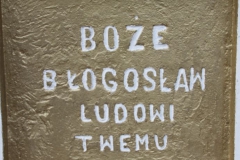 BOŻE
BŁOGOSŁAW
LUDOWI
TWEMU